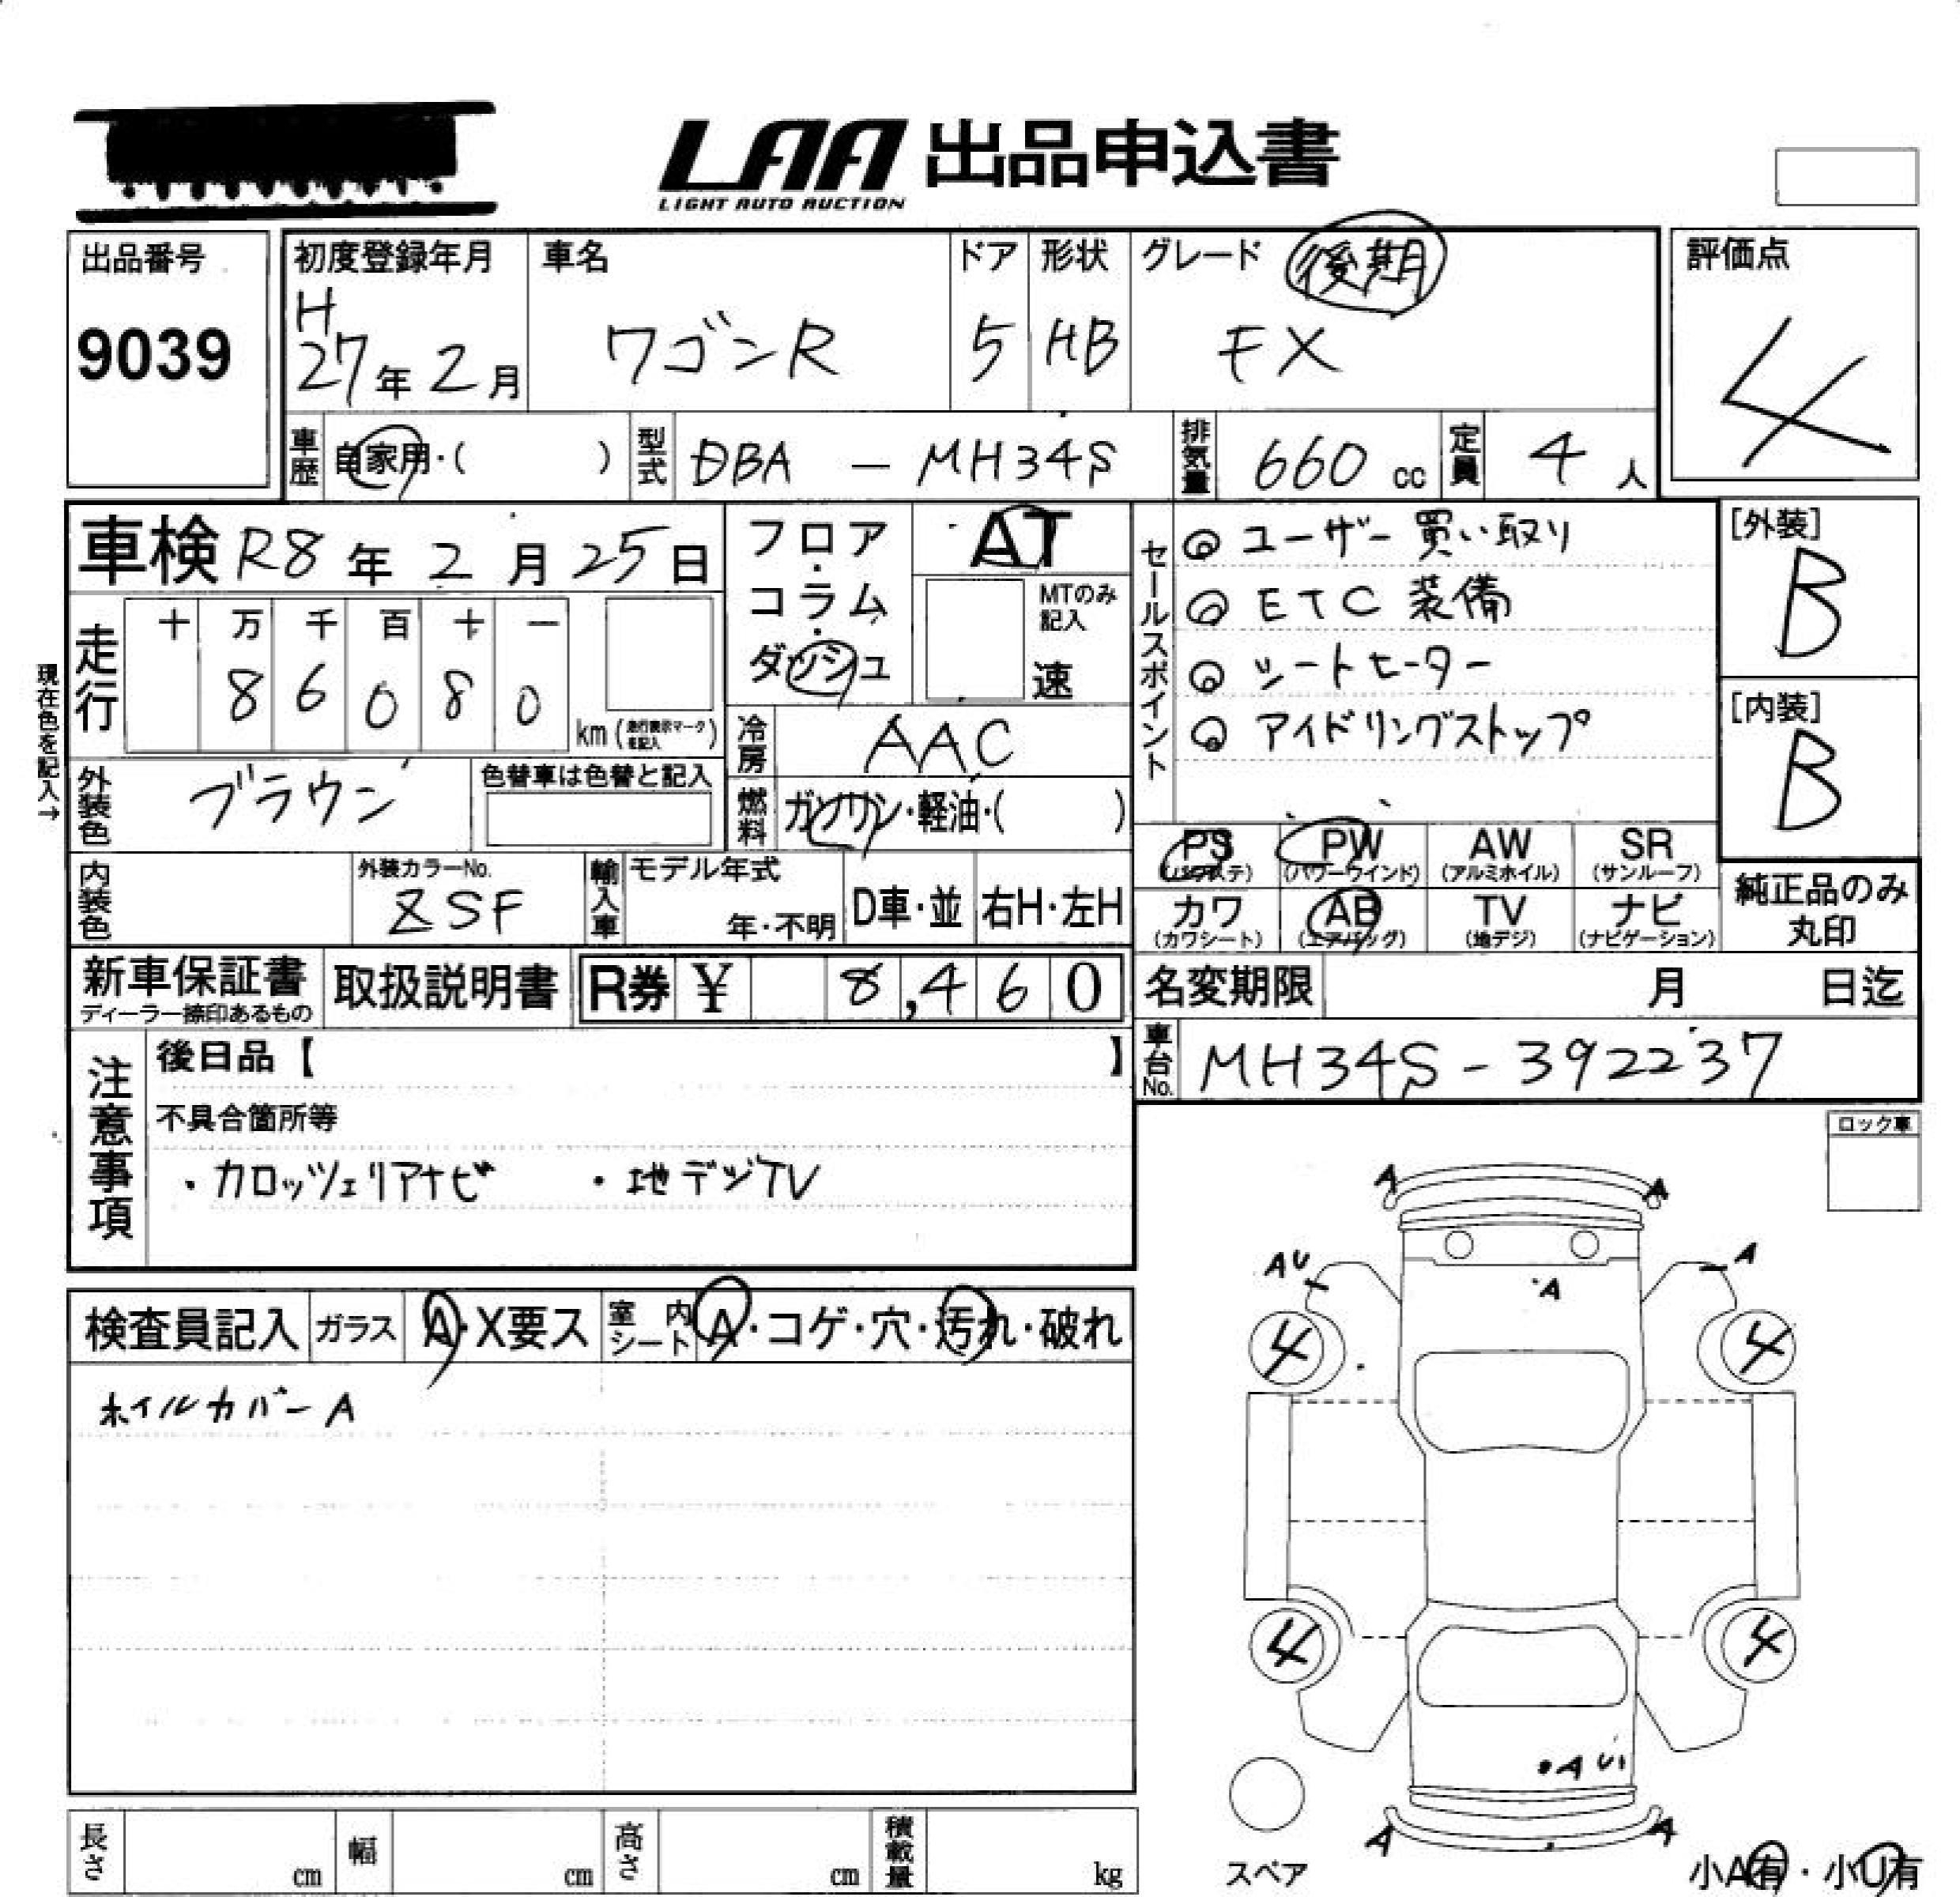 LAA 出品申込書
LIGHT AUTO AUCTION
出品番号
9039
初度登録年月
H
27年2月
車名
ワゴンR
ドア
5
形状
HB
グレード 後期
FX
評価点
4
車歴 自家用・( )
型式 DBA - MH34S
排気量 660 cc
定員 4 人
車検 R8年 2月 25日
フロア・コラム・ダッシュ
AT
MTのみ記入
速
セールスポイント
◎ ユーザー買い取り
◎ ETC 装備
◎ シートヒーター
◎ アイドリングストップ
[外装]
B
[内装]
B
現在色を記入→
走行
十 万 千 百 十 一
8 6 0 8 0
km (走行表示マークを記入)
冷房 AAC
外装色 ブラウン
色替車は色替と記入
燃料 ガソリン・軽油・( )
内装色
外装カラーNo.
ZSF
輸入車
モデル年式
年・不明
D車・並
右H・左H
PS (パワステ)
PW (パワーウインド)
AW (アルミホイル)
SR (サンルーフ)
カワ (カワシート)
AB (エアバッグ)
TV (地デジ)
ナビ (ナビゲーション)
純正品のみ
丸印
新車保証書
ディーラー捺印あるもの
取扱説明書
R券 ¥ 8,460
名変期限 月 日迄
車台No. MH34S-392237
注意事項
後日品【 】
不具合箇所等
・カロッツェリアナビ ・地デジTV
ロック車
検査員記入
ガラス A・X要ス
室内シート A・コゲ・穴・汚れ・破れ
ホイルカバーA
A A
AU A
・A
4 4
4 4
・AU
A A
スペア
小A有・小U有
長さ cm
幅 cm
高さ cm
積載量 kg